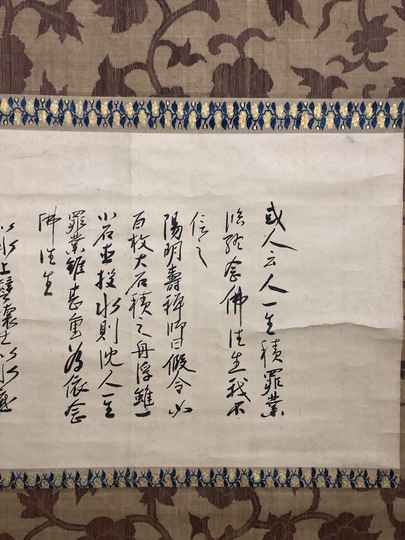 或人云人一生積罪業
臨終念佛往生我不
信之
陽明壽禅師曰假令以
百枚大石積之舟浮雖一
小石直投水則沈人一生
罪業雖甚重為依念
佛往生
水上譬